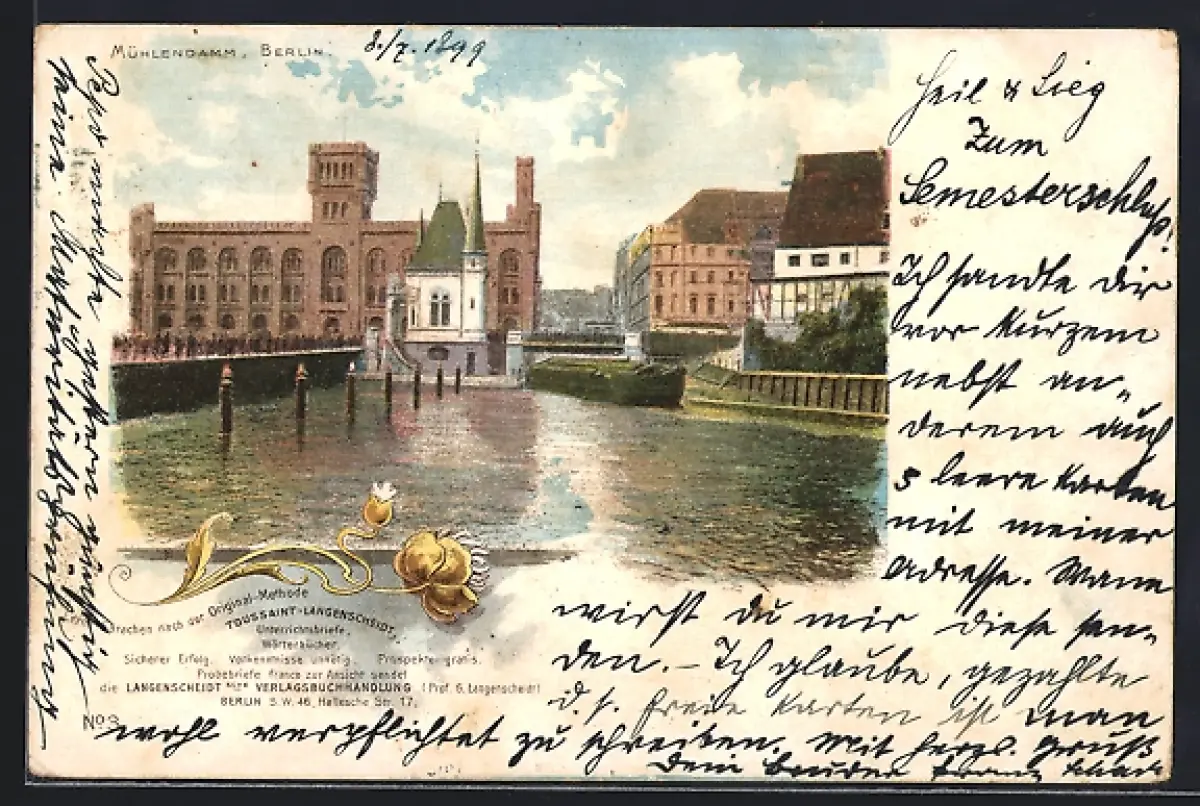 MÜHLENDAMM, BERLIN.
8./7. 1899
Heil & Sieg
Zum
Semesterschluß!
Ich sandte dir
vor Kurzem
nebst an-
derem auch
5 leere Karten
mit meiner
Adresse. Wann
wirst du mir diese sen-
den. – Ich glaube, gezahlte
d. s. freie Karten ist man
wohl verpflichtet zu schreiben. Mit herzl. Gruß
Dein Bruder Franz
Sprachen nach der Original-Methode
TOUSSAINT-LANGENSCHEIDT,
Unterrichtsbriefe.
Wörterbücher.
Sicherer Erfolg. Vorkenntnisse unnötig. Prospekte gratis.
Probebriefe franco zur Ansicht sendet
die LANGENSCHEIDTsche VERLAGSBUCHHANDLUNG (Prof. G. Langenscheidt)
BERLIN S.W. 46, Hallesche Str. 17.
No 3